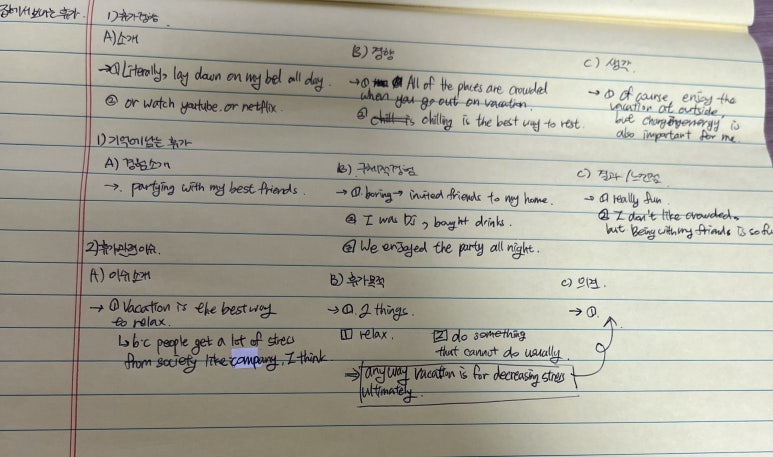 집에서 보내는 휴가
1) 휴가경향
A) 소개
→ ① Literally, lay down on my bed all day.
② or watch youtube. or netflix.
B) 경향
→ ① All of the places are crowded
when you go out on vacation.
② chill is chilling is the best way to rest.
C) 생각
→ ① Of course, enjoy the
vacation at outside,
but energy is
also important for me.
1) 기억에 남는 휴가
A) 경험소개
→. partying with my best friends.
B) 구체적경험
→ ① boring → invited friends to my home.
② I was DJ, bought drinks.
③ We enjoyed the party all night.
C) 결과/느낀점
→ ① really fun.
② I don't like crowded.
but Being with my friends is so fu
2) 휴가관련이슈.
A) 이슈소개
→ ① Vacation is the best way
to relax.
↳ b.c people get a lot of stress
from society like company, I think.
B) 휴가목적
→ ①. 2 things.
1 relax.
2 do something
that cannot do usually.
⇒ anyway vacation is for decreasing stress
ultimately.
C) 의견.
→ ①.